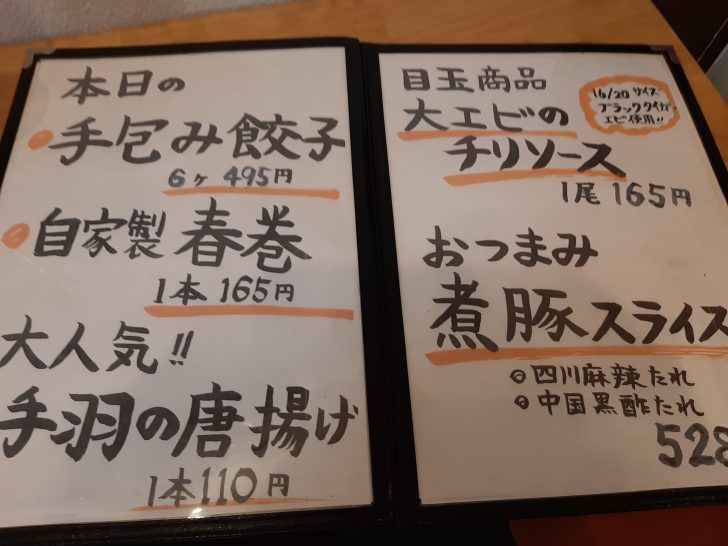 本日の
手包み餃子
6ヶ 495円
自家製 春巻
1本 165円
大人気!!
手羽の唐揚げ
1本110円
目玉商品
大エビの
チリソース
1尾 165円
16/20 サイズ
ブラックタイガー
エビ使用!!
おつまみ
煮豚スライス
◎四川麻辣たれ
◎中国黒酢たれ
528